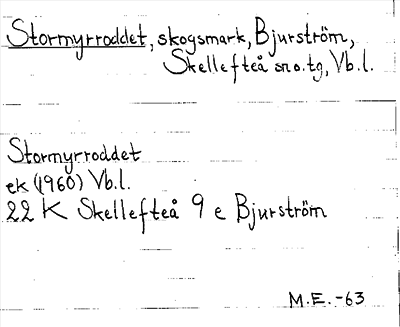 Stormyrroddet, skogsmark, Bjurström,
Skellefteå sn o. tg, Vb.l.
Stormyrroddet
ek (1960) Vb.l.
22 K Skellefteå 9 e Bjurström
M.E. -63